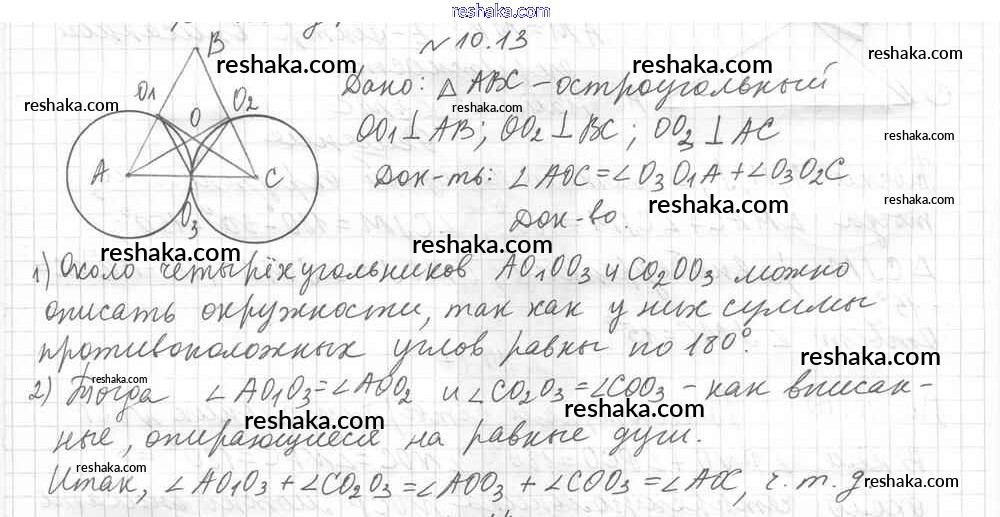 reshaka.com
№ 10.13
B
O1
O
O2
A
C
O3
Дано: △ ABC - остроугольный
OO1 ⊥ AB; OO2 ⊥ BC; OO3 ⊥ AC
Док-ть: ∠AOC = ∠O3O1A + ∠O3O2C
Док-во.
1) Около четырёхугольников AO1OO3 и CO2OO3 можно
описать окружности, так как у них суммы
противоположных углов равны по 180°.
2) Тогда ∠AO1O3 = ∠AOO2 и ∠CO2O3 = ∠COO3 - как вписан-
ные, опирающиеся на равные дуги.
Итак, ∠AO1O3 + ∠CO2O3 = ∠AOO3 + ∠COO3 = ∠AOC, ч. т. д
reshaka.com
reshaka.com
reshaka.com
reshaka.com
reshaka.com
reshaka.com
reshaka.com
reshaka.com
reshaka.com
reshaka.com
reshaka.com
reshaka.com
reshaka.com
reshaka.com
reshaka.com